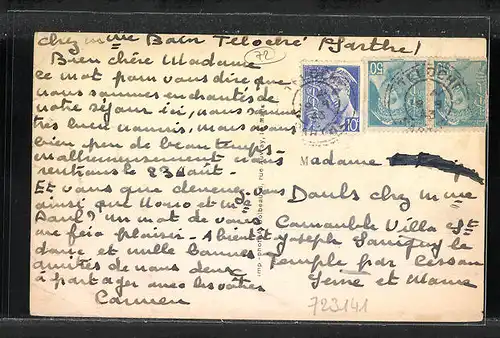 chez mme Bain Téloché (Sarthe)
72
Bien chère Madame
ce mot pour vous dire que
nous sommes enchantés de
notre séjour ici, nous sommes
très bien nourris, nous avons
bien peu de beau temps
malheureusement nous
rentrons le 23 août.
Et vous que devenez vous
ainsi que
Paul? un mot de vous
me fera plaisir. A bientôt
dame et mille bonnes
amitiés de nous deux
à partager avec les vôtres
Carmen
50
10
TELOCHE
Madame
chez mme
Villa St
Joseph le
Temple par Cesson
Seine et Marne
723141